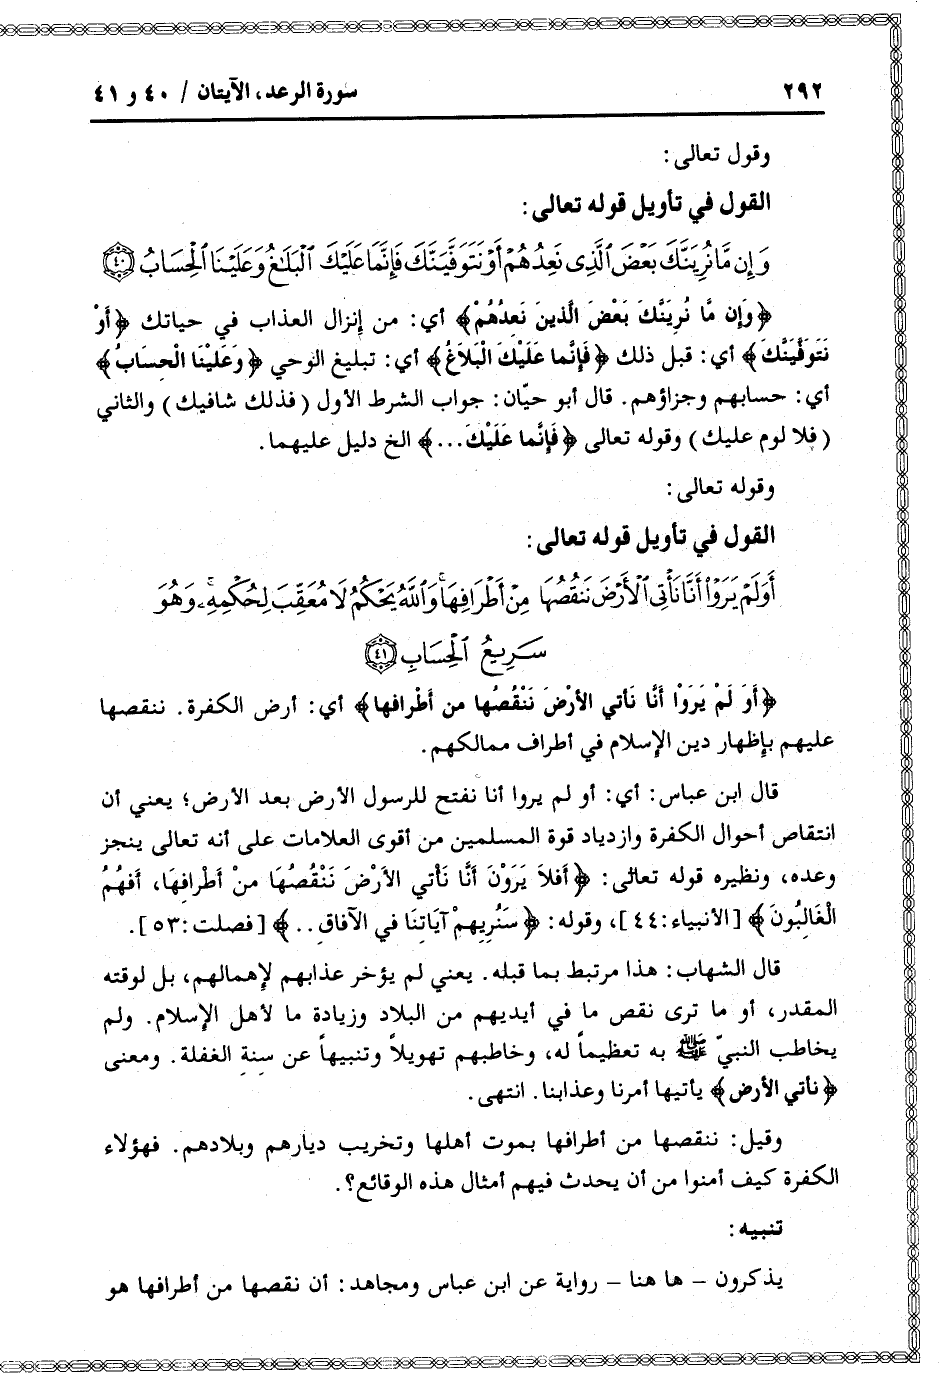 ٢٩٢ سورة الرعد، الآيتان / ٤٠ و ٤١
وقول تعالى:
القول في تأويل قوله تعالى:
وَإِن مَّا نُرِيَنَّكَ بَعْضَ ٱلَّذِى نَعِدُهُمْ أَوْ نَتَوَفَّيَنَّكَ فَإِنَّمَا عَلَيْكَ ٱلْبَلَٰغُ وَعَلَيْنَا ٱلْحِسَابُ ﴿٤٠﴾
﴿وَإِن مَّا نُرِيَنَّكَ بَعْضَ الَّذينَ نَعدُهُمْ﴾ أي: من إنزال العذاب في حياتك ﴿أَوْ
نَتَوفَّيَنَّكَ﴾ أي: قبل ذلك ﴿فَإنَّما عَلَيْكَ الْبَلاَغُ﴾ أي: تبليغ الوحي ﴿وَعَلَيْنَا الْحسَابُ﴾
أي: حسابهم وجزاؤهم. قال أبو حيّان: جواب الشرط الأول (فذلك شافيك) والثاني
(فلا لوم عليك) وقوله تعالى ﴿فَإِنَّما عَلَيْكَ...﴾ الخ دليل عليهما.
وقوله تعالى:
القول في تأويل قوله تعالى:
أَوَلَمْ يَرَوْا۟ أَنَّا نَأْتِى ٱلْأَرْضَ نَنقُصُهَا مِنْ أَطْرَافِهَا ۚ وَٱللَّهُ يَحْكُمُ لَا مُعَقِّبَ لِحُكْمِهِۦ ۚ وَهُوَ
سَرِيعُ ٱلْحِسَابِ ﴿٤١﴾
﴿أَوَ لَمْ يَرَوْا أَنَّا نَأتي الأرْضَ نَنْقُصُها من أَطْرافها﴾ أي: أرض الكفرة. ننقصها
عليهم بإظهار دين الإسلام في أطراف ممالكهم.
قال ابن عباس: أي: أو لم يروا أنا نفتح للرسول الأرض بعد الأرض؛ يعني أن
انتقاص أحوال الكفرة وازدياد قوة المسلمين من أقوى العلامات على أنه تعالى ينجز
وعده، ونظيره قوله تعالى: ﴿أَفلاَ يَرَوْنَ أَنَّا نَأْتي الأرْضَ نَنْقُصُهَا منْ أَطْرَافِهَا، أَفهُمُ
الْغَالِبُونَ﴾ [الأنبياء:٤٤]، وقوله: ﴿سَنُرِيهمْ آيَاتنَا في الآفَاقِ..﴾ [فصلت:٥٣].
قال الشهاب: هذا مرتبط بما قبله. يعني لم يؤخر عذابهم لإهمالهم، بل لوقته
المقدر، أو ما ترى نقص ما في أيديهم من البلاد وزيادة ما لأهل الإسلام. ولم
يخاطب النبيّ ﷺ به تعظيماً له، وخاطبهم تهويلاً وتنبيهاً عن سنة الغفلة. ومعنى
﴿نأتي الأرض﴾ يأتيها أمرنا وعذابنا. انتهى.
وقيل: ننقصها من أطرافها بموت أهلها وتخريب ديارهم وبلادهم. فهؤلاء
الكفرة كيف أمنوا من أن يحدث فيهم أمثال هذه الوقائع؟.
تنبيه:
يذكرون – ها هنا – رواية عن ابن عباس ومجاهد: أن نقصها من أطرافها هو